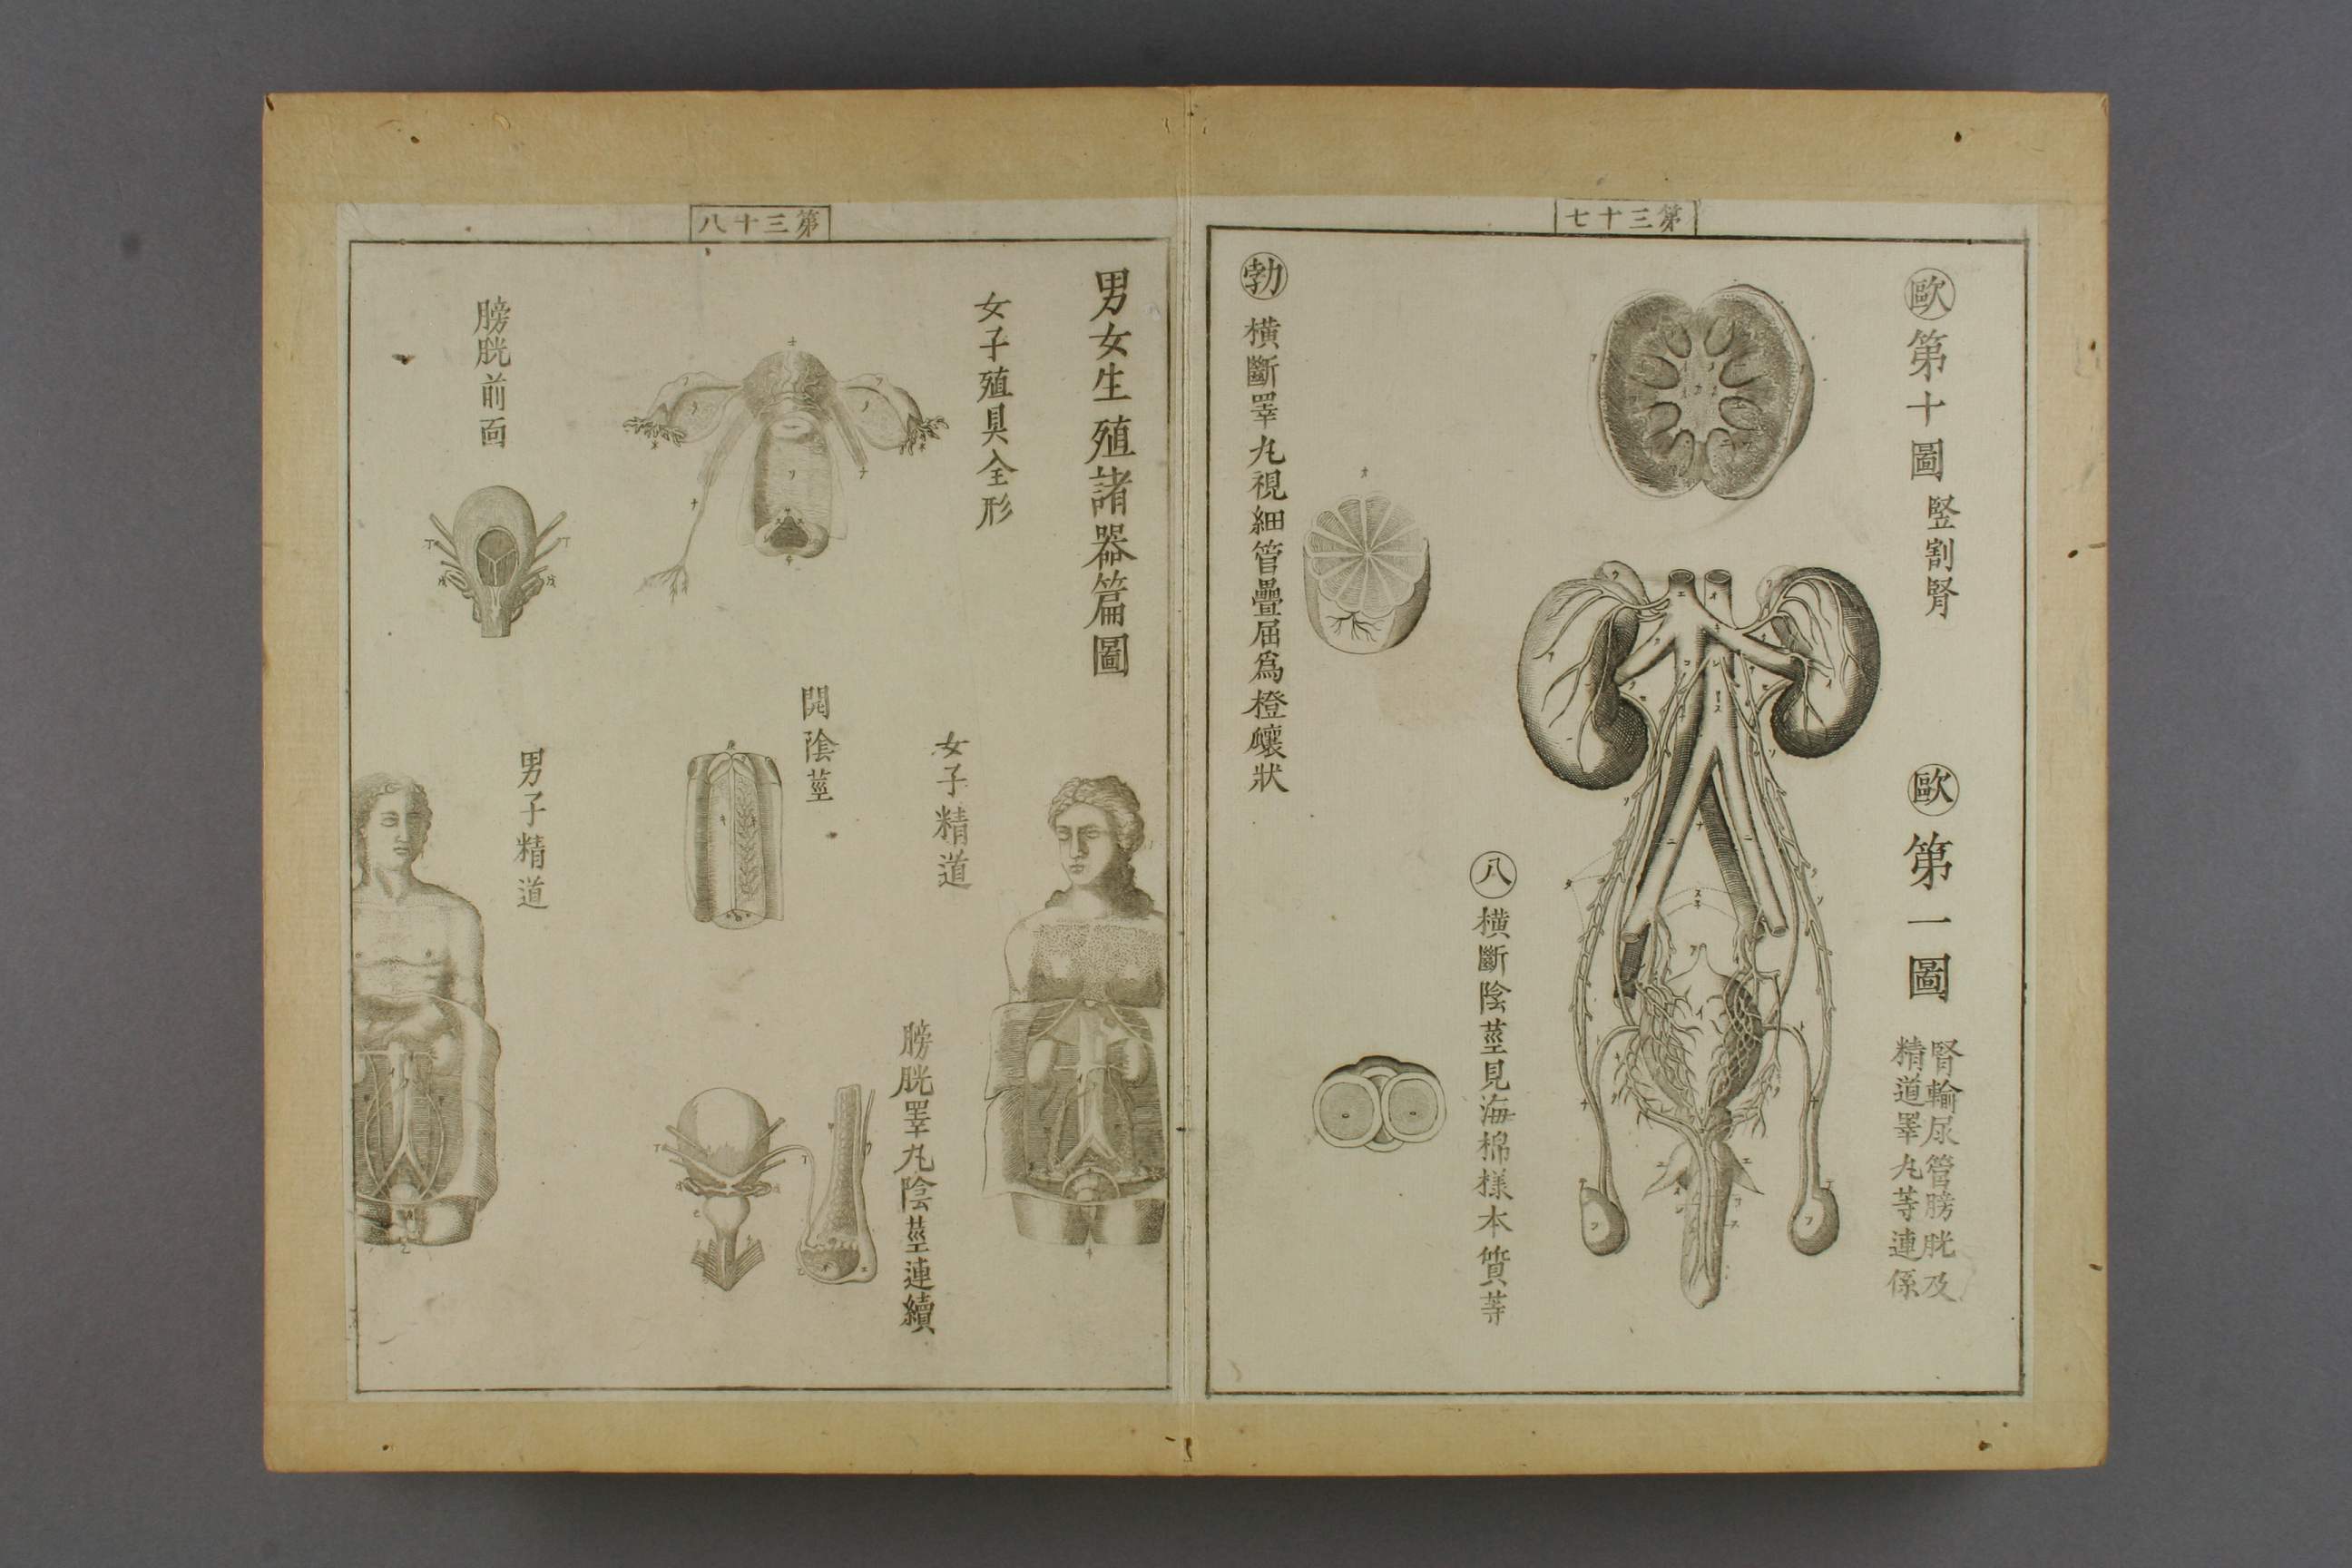 第三十七
歐 第十圖 竪割腎
歐 第一圖 腎輸尿管膀胱及
精道睪丸等連係
八 横斷陰莖見海棉様本質等
勃 横斷睪丸視細管疊屈爲橙瓤狀
第三十八
男女生殖諸器篇圖
女子殖具全形
女子精道
膀胱睪丸陰莖連續
開陰莖
男子精道
膀胱前面